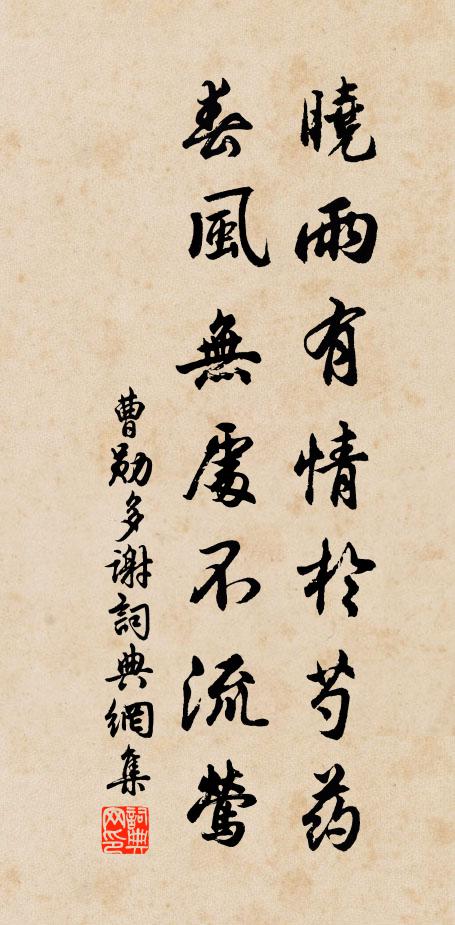 曉雨有情於芍药
春風無處不流鶯
曹勛多謝詞典網集
詞典网印